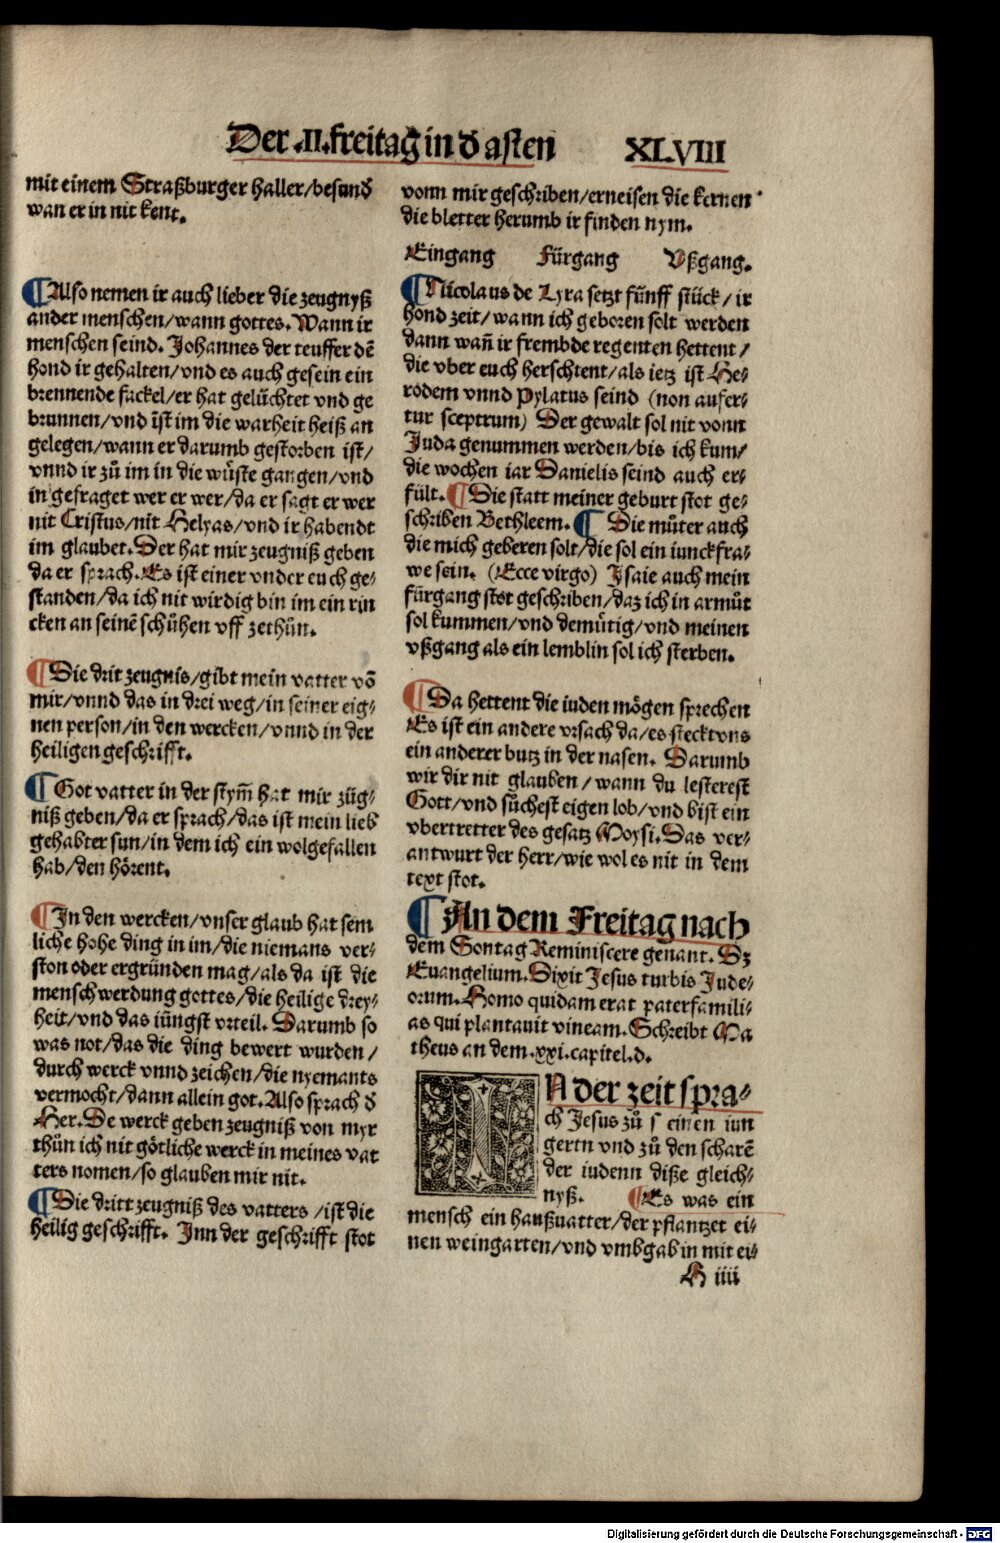 Der .II. freitag in d̕ asten XLVIII
mit einem Straßburger haller/besund̕
wan er in nit kent.
¶Also nemen ir auch lieber die zeugnyß
ander menschen/wann gottes. Wann ir
menschen seind. Johannes der teuffer dē
hond ir gehalten/vnd es auch gesein ein
brennende fackel/er hat gelüchtet vnd ge
brunnen/vnd ist im die warheit heiß an
gelegen/wann er darumb gestorben ist/
vnnd ir zů im in die wůste gangen/vnd
in gefraget wer er wer/da er sagt er wer
nit Cristus/nit Helyas/vnd ir habendt
im glaubet. Der hat mir zeugniß geben
da er sprach. Es ist einer vnder euch ge⸗
standen/da ich nit wirdig bin im ein rin
cken an seinē schůhen vff zethůn.
¶Die drit zeugnis/gibt mein vatter võ
mir/vnnd das in drei weg/in seiner eig⸗
nen person/in den wercken/vnnd in der
heiligen geschrifft.
¶Got vatter in der stym̄ hat mir züg⸗
niß geben/da er sprach/das ist mein lieb
gehabter sun/in dem ich ein wolgefallen
hab/den hörent.
¶In den wercken/vnser glaub hat sem
liche hohe ding in im/die niemans ver⸗
ston oder ergründen mag/als da ist die
menschwerdung gottes/die heilige drey⸗
heit/vnd das iüngst vrteil. Darumb so
was not/das die ding bewert wurden/
durch werck vnnd zeichen/die nyemants
vermocht/dann allein got. Also sprach d̕
Her. De werck geben zeugniß von myr
thůn ich nit götliche werck in meines vat
ters nomen/so glauben mir nit.
¶Die dritt zeugniß des vatters/ist die
heilig geschrifft. Inn der geschrifft stot
vonn mir geschriben/erneisen die kernen
die bletter herumb ir finden nym.
Eingang Fürgang Vßgang.
¶Nicolaus de Lyra setzt fünff stück/ir
hond zeit/wann ich geboren solt werden
dann wañ ir frembde regenten hettent/
die vber euch herschtent/als ietz ist He⸗
rodem vnnd Pylatus seind (non aufer⸗
tur sceptrum) Der gewalt sol nit vonn
Juda genummen werden/bis ich kum/
die wochen iar Danielis seind auch er⸗
fült. ¶Die statt meiner geburt stot ge⸗
schriben Bethleem. ¶Die můter auch
die mich geberen solt/die sol ein iunckfra⸗
we sein. (Ecce virgo) Isaie auch mein
fürgang stot geschriben/daz ich in armůt
sol kummen/vnd demůtig/vnd meinen
vßgang als ein lemblin sol ich sterben.
¶Da hettent die iuden mögen sprechen
Es ist ein andere vrsach da/es steckt vns
ein anderer butz in der nasen. Darumb
wir dir nit glauben/wann du lesterest
Gott/vnd sůchest eigen lob/vnd bist ein
vbertretter des gesatz Moysi. Das ver⸗
antwurt der herr/wie wol es nit in dem
text stot.
¶An dem Freitag nach
dem Sontag Reminiscere genant. Dz
Euangelium. Dixit Jesus turbis Jude⸗
orum. Homo quidam erat paterfamili⸗
as qui plantauit vineam. Schreibt Ma
theus an dem .xxi. capitel. d.
IN der zeit spra⸗
ch Jesus zů seinen iun
gern vnd zů den scharē
der iudenn diße gleich⸗
nyß. ¶Es was ein
mensch ein haußuatter/der pflantzet ei⸗
nen weingarten/vnd vmbgab in mit ei⸗
H iiii
Digitalisierung gefördert durch die Deutsche Forschungsgemeinschaft - DFG